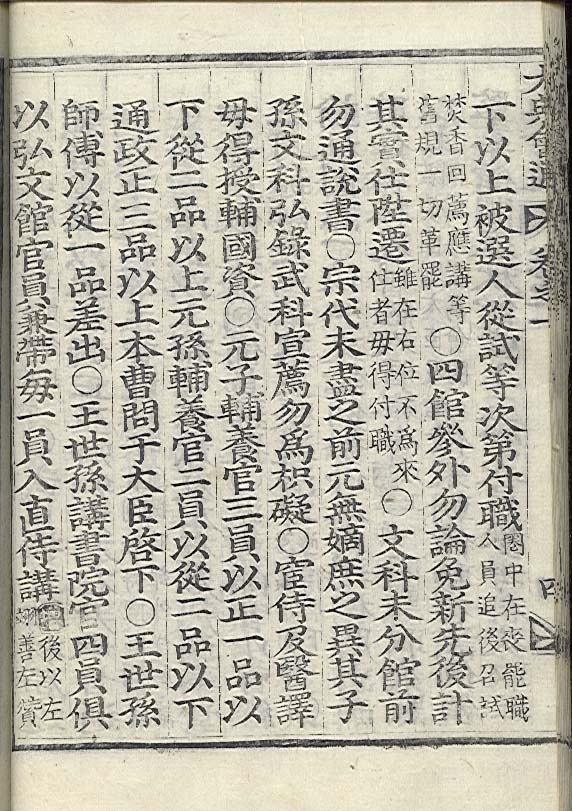 大典會通 卷之一
下以上被選人從試等次第付職圈中在喪罷職人員追後召試
焚香回薦應講等舊規一切革罷〇四館參外勿論免新先後計
其實仕陞遷雖在右位不爲來仕者毋得付職〇文科未分館前
勿通說書〇宗代未盡之前元無嫡庶之異其子
孫文科弘錄武科宣薦勿爲枳礙〇宦侍及醫譯
毋得授輔國資〇元子輔養官三員以正一品以
下從二品以上元孫輔養官二員以從二品以下
通政正三品以上本曹問于大臣啓下〇王世孫
師傅以從一品差出〇王世孫講書院官四員俱
以弘文館官員兼帶每一員入直侍講後以左翊善左贊